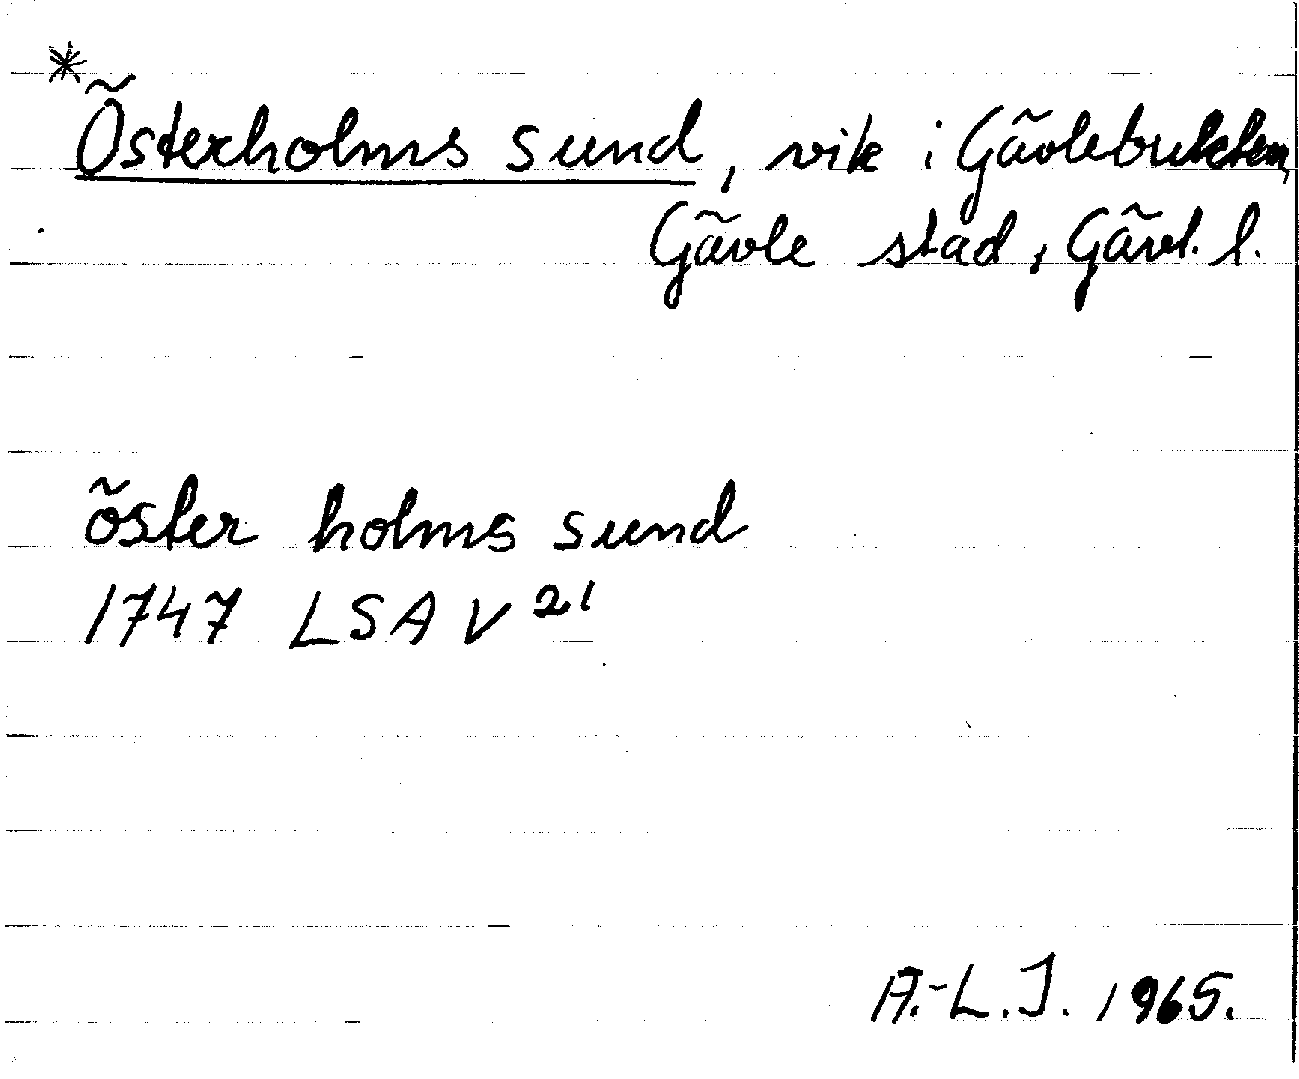 *
Österholms sund, vik i Gävlebukten,
Gävle stad, Gävl. l.
öster holms sund
1747 LSA V 21
A.-L.J. 1965.